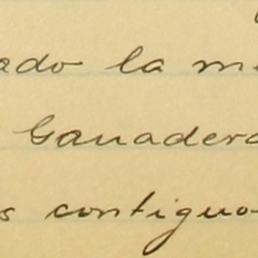 ado la m
Ganadera
s contiguo